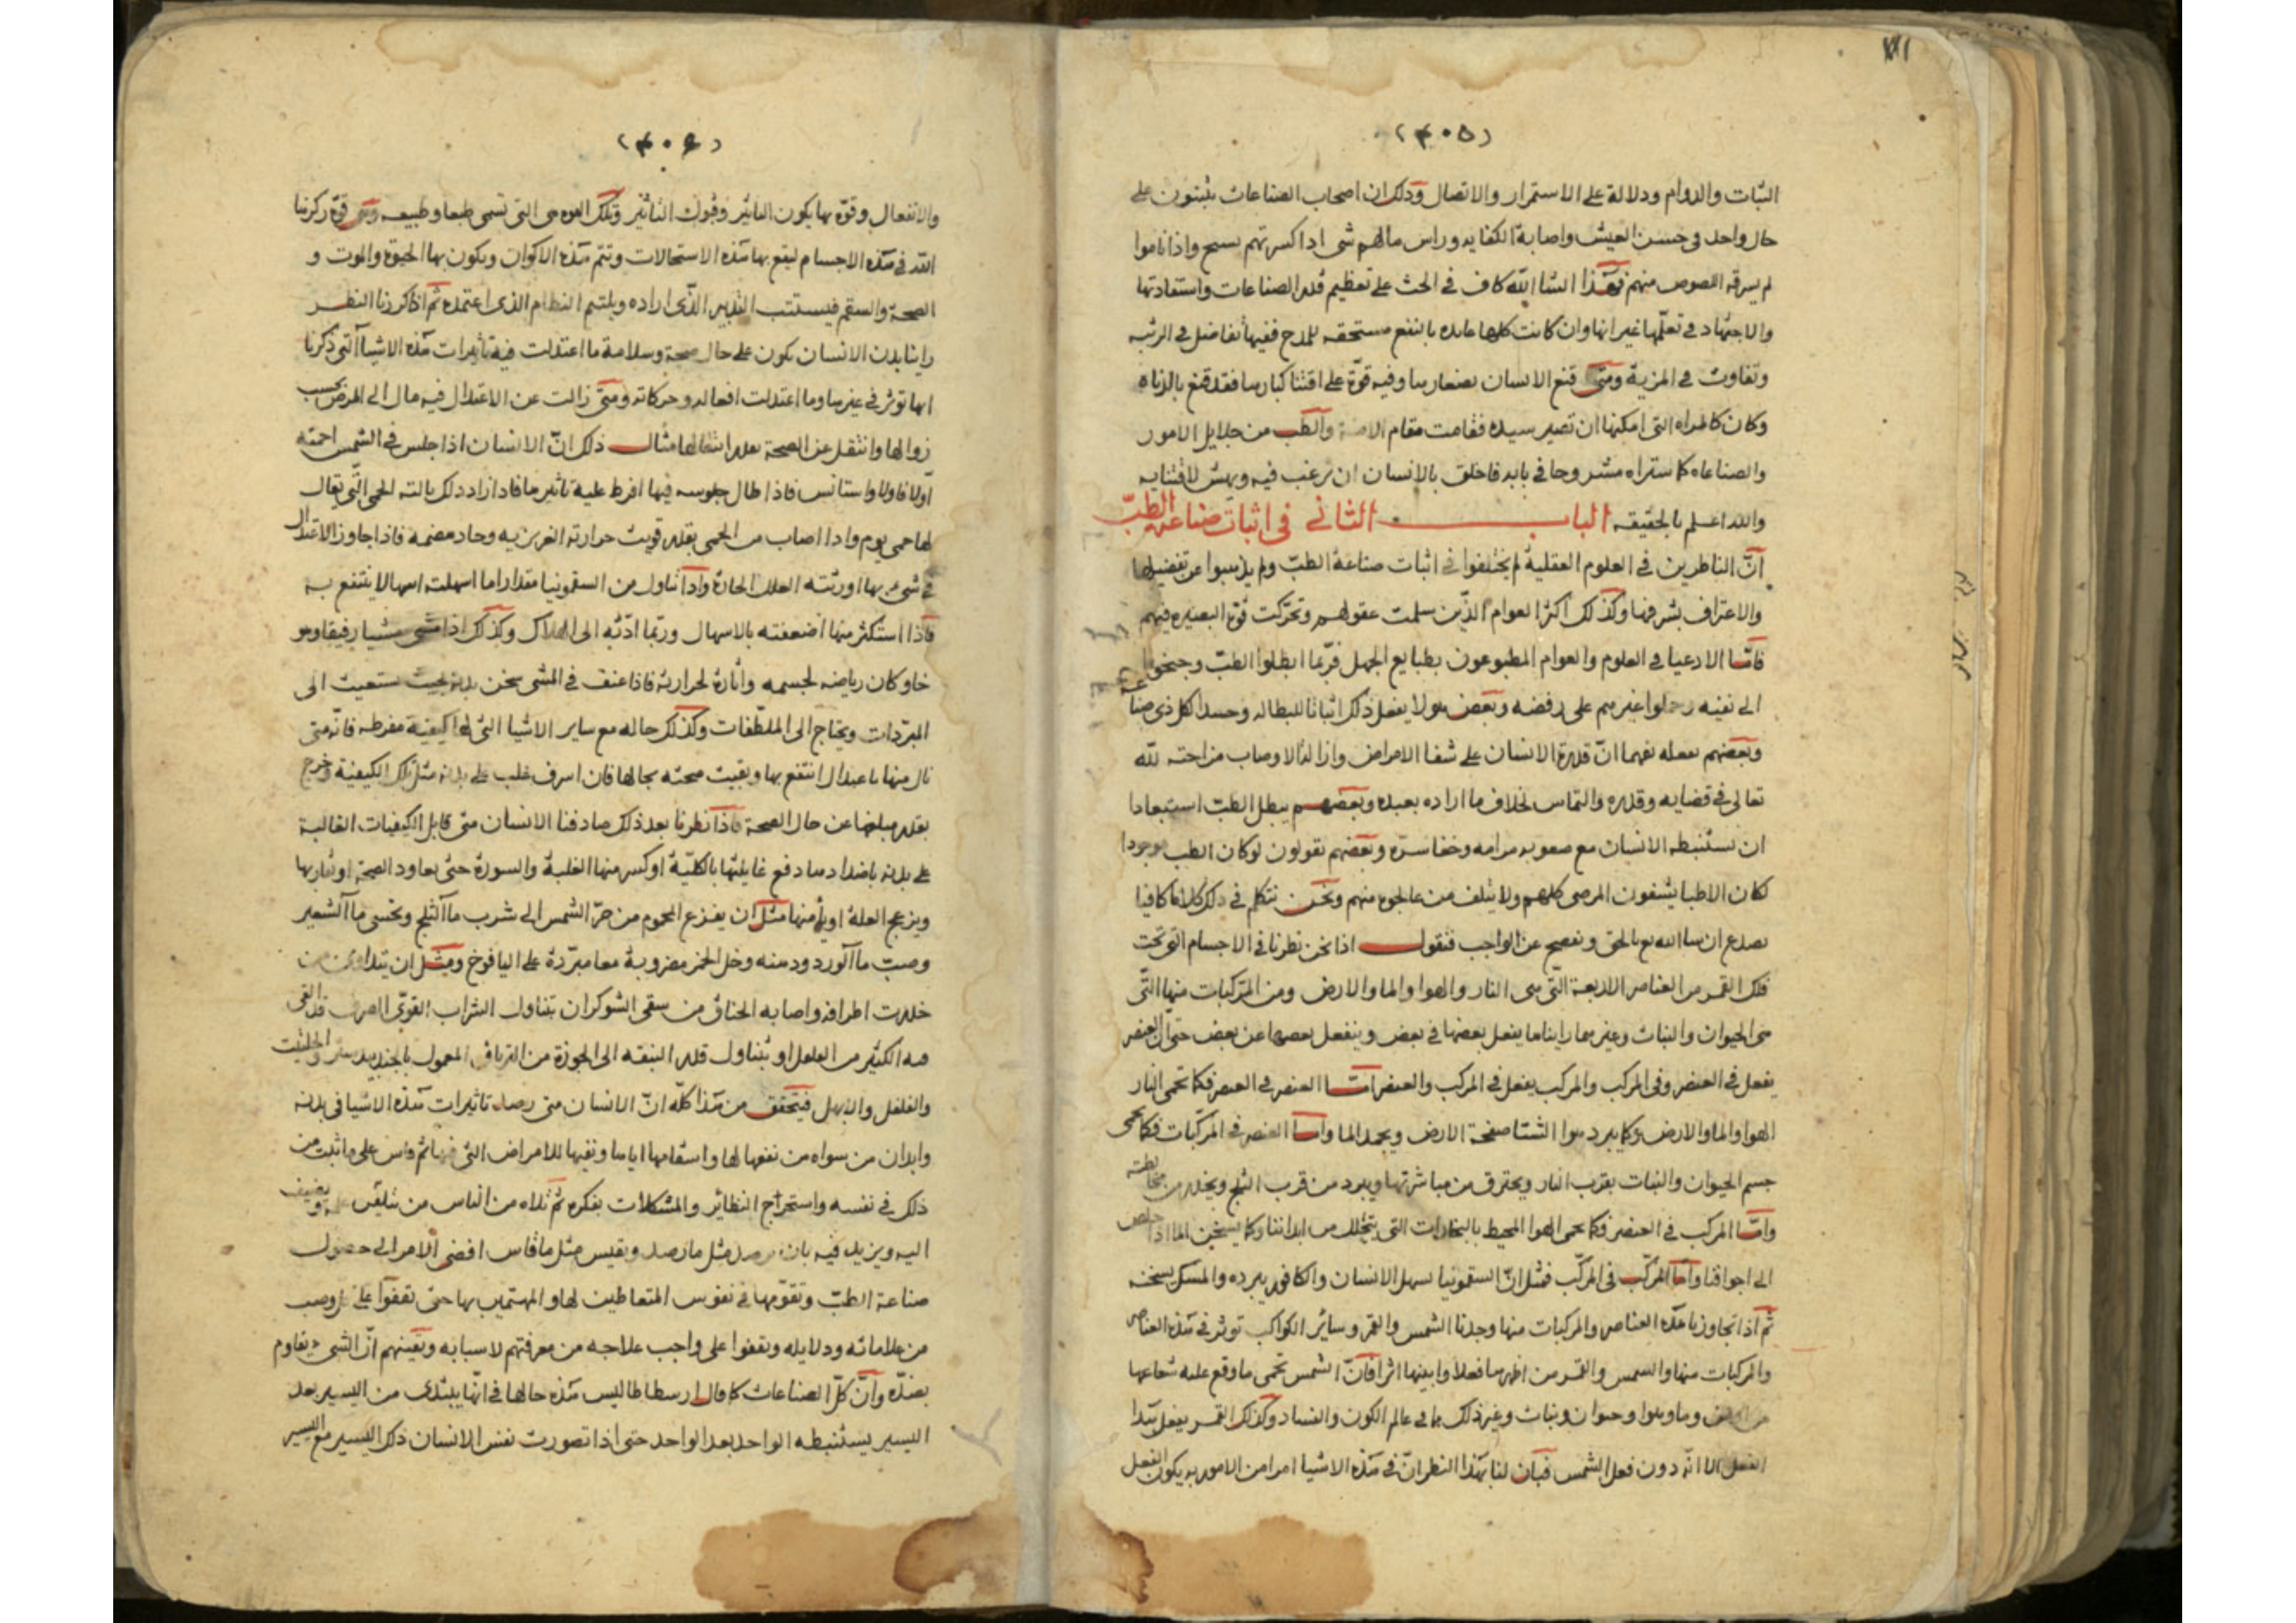 (٤٠٥)
الثبات والدوام ودلالة على الاستمرار والاتصال وذلك ان اصحاب الصناعات يثبتون على
حال واحد في حسن العيش واصابة الكفايه وراس مالهم شي اذا كسر تهم سبح واذا ناموا
لم يسرقه اللصوص منهم فهذا انشا الله كاف في الحث على تعظيم قدر الصناعات واستفادتها
والاجتهاد في تعلمها غير انها وان كانت كلها عايده بالنفع مستحقه للمدح ففيها تفاضل في الرتبه
وتفاوت في المزية ومتى قنع الانسان بصغارها وفيه قوة على اقتنا كبارها فقد قنع بالدناه
وكان كالمراه التي امكنها ان تصير سيده فقامت مقام الامة والطب من جلايل الامور
والصناعاه كما ستراه مشروحا في بابه فاخلق بالانسان ان يرغب فيه ويهش لاقتنايه
والله اعلم بالحقيقه الباب الثاني في اثبات صناعة الطب
ان الناظرين في العلوم العقلية لم يختلفوا في اثبات صناعة الطب ولم يذهبوا عن تفضيلها
والاعتراف بشرفها وكذلك اكثر العوام الذين سلمت عقولهم وتحركت قوة البصيره فيهم
فاما الادعيا في العلوم والعوام المطبوعون بطبايع الجهل فربما ابطلوا الطب وجنحوا
الى نفيه وحملوا غيرهم على رفضه وبعض هولا يفعل ذلك اثباتا للبطاله وحسدا لكل ذي صناعة
وبعضهم يفعله تفهما ان قدرة الانسان على شفا الامراض وازالة الاوصاب مزاحمه لله
تعالى في قضايه وقدره والتماس لخلاف ما اراده بعبده وبعضهم يبطل الطب استبعادا
ان يستنبطه الانسان مع صعوبه مرامه وخفا سره وبعضهم يقولون لو كان الطب موجودا
لكان الاطبا يشفون المرضى كلهم ولا يتلف من عالجوه منهم ونحن نتكلم في ذلك كلاما كافيا
يصدع ان شا الله مع بالحق ونفصح عن الواجب فنقول اذا نحن نظرنا في الاجسام التي تحت
فلك القمر من العناصر الاربعة التي هي النار والهوا والما والارض ومن المتركبات منها التي
هي الحيوان والنبات وغيرهما راينا ما يفعل بعضها في بعض وينفعل بعضها عن بعض حتى ان العنصر
يفعل في العنصر وفي المركب والمركب يفعل في المركب والعنصر اما العنصر في العنصر فكما تحمي النار
الهوا والما والارض وكما يبرد هوا الشتا صفحة الارض ويجمد الما واما العنصر في المركبات فكما يحمى
جسم الحيوان والنبات بقرب النار ويحترق من مباشرتها ويبرد من قرب الثلج ويخدر من مخالطته
واما المركب في العنصر فكما يحمى الهوا المحيط بالبخارات التي تتحلل من ابداننا وكما يسخن الما اذا خلص
الى اجوافنا واما المركب في المركب فمثل ان السقمونيا يسهل الانسان والكافور يبرده والمسك يسخنه
ثم اذا تجاوزنا هذه العناصر والمركبات منها وجدنا الشمس والقمر وساير الكواكب توثر في هذه العناصر
والمركبات منها والشمس والقمر من اظهرها فعلا وابينها اثرا فان الشمس تحمي ما وقع عليه شعاعها
من ارض وما وهوا وحيوان ونبات وغير ذلك مما في عالم الكون والفساد وكذلك القمر يفعل هذا
الفعل الا انه دون فعل الشمس فبان لنا بهذا النظر ان في هذه الاشيا امرا من الامور به يكون الفعل
(٤٠٦)
والانفعال وقوة بها يكون التاثير وقبول التاثير وتلك القوه هي التي تسمى طبعا وطبيعه وهي قوة ركزها
الله في هذه الاجسام ليقع بها هذه الاستحالات وتتم هذه الاكوان ويكون بها الحيوة والموت و
الصحة والسقم فيستتب التدبير الذي اراده ويلتيم النظام الذي اعتمده ثم اذا كررنا النظر
راينا بدن الانسان يكون على حال صحة وسلامة ما اعتدلت فيه تاثيرات هذه الاشيا التي ذكرنا
انها توثر في غيرها وما اعتدلت افعاله وحركاته ومتى زالت عن الاعتدال فيه مال الى المرض بحسب
زوالها وانتقل عن الصحة بقدر انتقالها مثال ذلك ان الانسان اذا جلس في الشمس احمته
اولا فاولا واستانس فاذا طال جلوسه فيها افرط عليه تاثيرها فاذا زاد ذلك نالته الحمى التي يقال
لها حمى يوم واذا اصاب من الحمى بقدر قويت حرارته الغريزيه وجاد هضمه فاذا جاوز الاعتدال
في شي بها اورثته العلل الحارة واذا تناول من السقمونيا مقدارا ما اسهلته اسهالا ينتفع به
فاذا استكثر منها اضعفته بالاسهال وربما ادته الى الهلاك وكذلك اذا مشى مشيا رفيقا وهو
خاو كان رياضه لجسمه واثارة لحرارته فاذا عنف في المشي سخن بدنه بحيث يستعيث الى
المبردات ويحتاج الى الملطفات وكذلك حاله مع ساير الاشيا التي لها كيفية مفرطه فانه متى
نال منها باعتدال انتفع بها وبقيت صحته بحالها فان اسرف غلب على بدنه مثل تلك الكيفية وخرج
بقدر مبلغها عن حال الصحة فاذا نظرنا بعد ذلك صادفنا الانسان متى قابل الكيفيات الغالبة
على بدنه باضدادها دفع غايلتها بالكلية او كسر منها الغلبة والسورة حتى يعاود الصحة او يقاربها
ويزعج العلة او يبرأ منها مثل ان يفزع المحموم من حر الشمس الى شرب ما الثلج وتحسي ما الشعير
وصب ما الورد ودهنه وخل الخمر مضروبة معا مبردة على اليافوخ ومثل ان يتداوى من
خدرت اطرافه واصابه الخناق من سقي الشوكران بتناول الشراب القوي الصرف قد القي
فيه الكثير من الفلفل او يتناول قدر البندقه الى الجوزة من الترياق المعمول بالجندبيدستر والحلتيت
والفلفل والابهل فيتحقق من هذا كله ان الانسان متى رصد تاثيرات هذه الاشيا في بدنه
وابدان من سواه من نفعها لها واسقامها اياها ونفيها للامراض التي فيها ثم قاس على ما ثبت من
ذلك في نفسه واستخراج النظائر والمشكلات بفكره ثم تلاه من الناس من تلقى عنه ويضيف
اليه ويزيد فيه بان يرصد مثل ما رصد ويقيس مثل ما قاس افضى الامر الى حصول
صناعة الطب وتقومها في نفوس المتعاطين لها والمهتمين بها حتى تقفوا على
من علاماته ودلايله ويقفوا على واجب علاجه من معرفتهم لاسبابه ويقينهم ان الشي يقاوم
بضده وان كل الصناعات كما قال ارسطاطاليس هذه حالها في انها يبتدى من اليسير بعد
اليسير يستنبطه الواحد بعد الواحد حتى اذا تصورت نفس الانسان ذلك اليسير مع اليسير